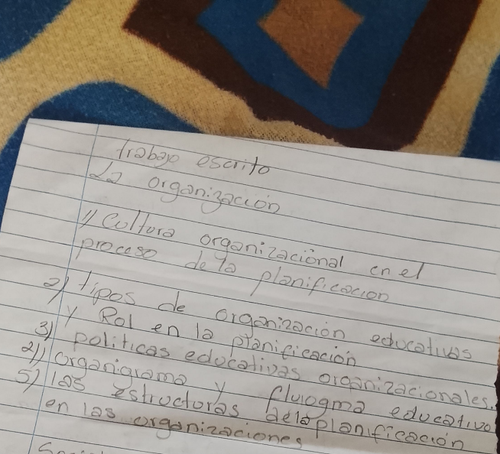 trabajo escrito
La organización
1) Cultura organizacional en el
proceso de la planificacion
2) tipos de organización educativas
y Rol en la planificación
3) politicas educativas organizacionales.
4) organigrama y flujogma educativo
5) las estructuras de la planificación
en las organizaciones